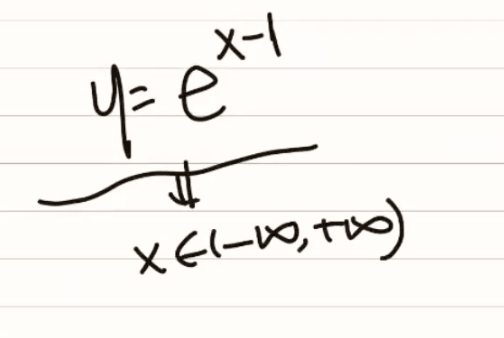 y = e^{x-1}
⇓
x ∈ (-∞, +∞)